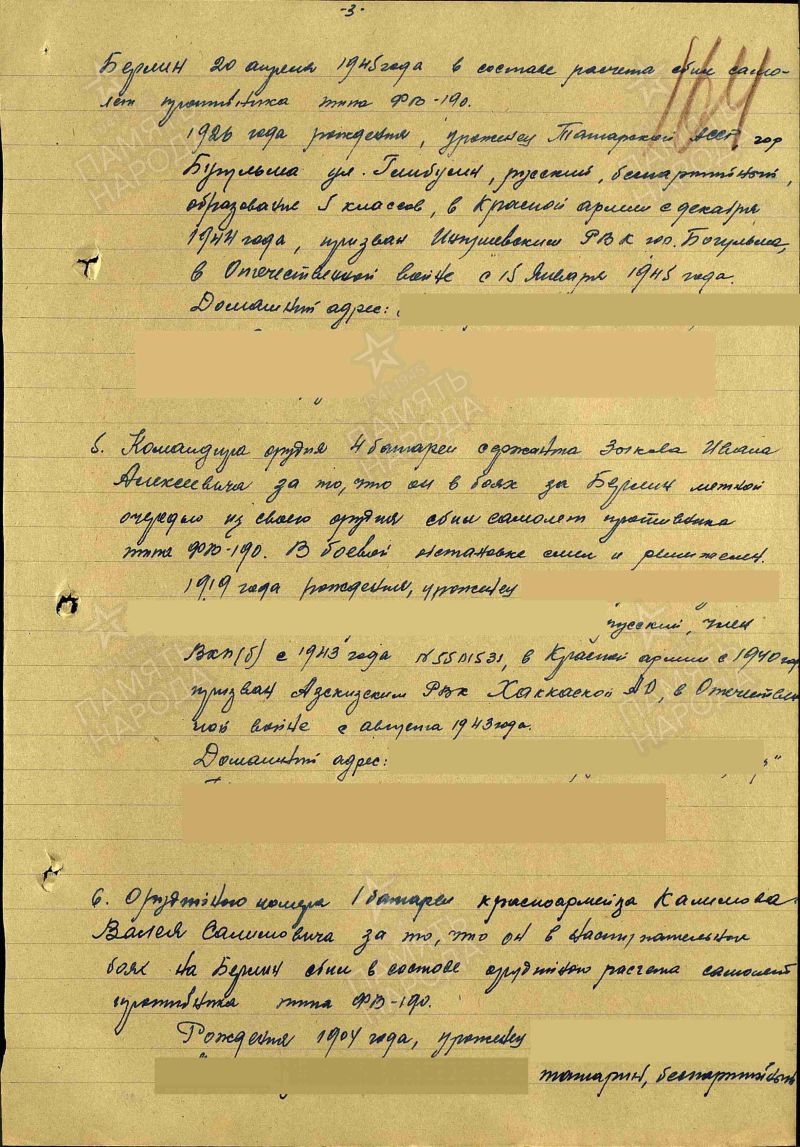 -3-
164
Берлин 20 апреля 1945 года в составе расчета сбил само-
лет противника типа ФВ-190.
1926 года рождения, уроженец Татарской АССР, гор
Бугульма ул. русский, беспартийный,
образование 5 классов, в Красной армии с декабря
1944 года, призван РВК гор. Богульма,
в Отечественной войне с 15 Января 1945 года.
Домашний адрес:
5. Командира орудия 4 батареи сержанта Зыкова Ивана
Алексеевича за то, что он в боях за Берлин меткой
очередью из своего орудия сбил самолет противника
типа ФВ-190. В боевой обстановке смел и решителен.
1919 года рождения, уроженец
русский, член
ВКП(б) с 1943 года в Красной армии с 1940 год
призван Аскизским РВК Хаккаской АО, в Отечествен
ной войне с августа 1943 года.
Домашний адрес:
6. Орудийного номера 1 батареи красноармейца Калимова
Валея Салимовича за то, что он в наступательных
боях на Берлин сбил в составе орудийного расчета самолет
противника типа ФВ-190.
Рождения 1904 года, уроженец
татарин, беспартийный
ПАМЯТЬ
НАРОДА